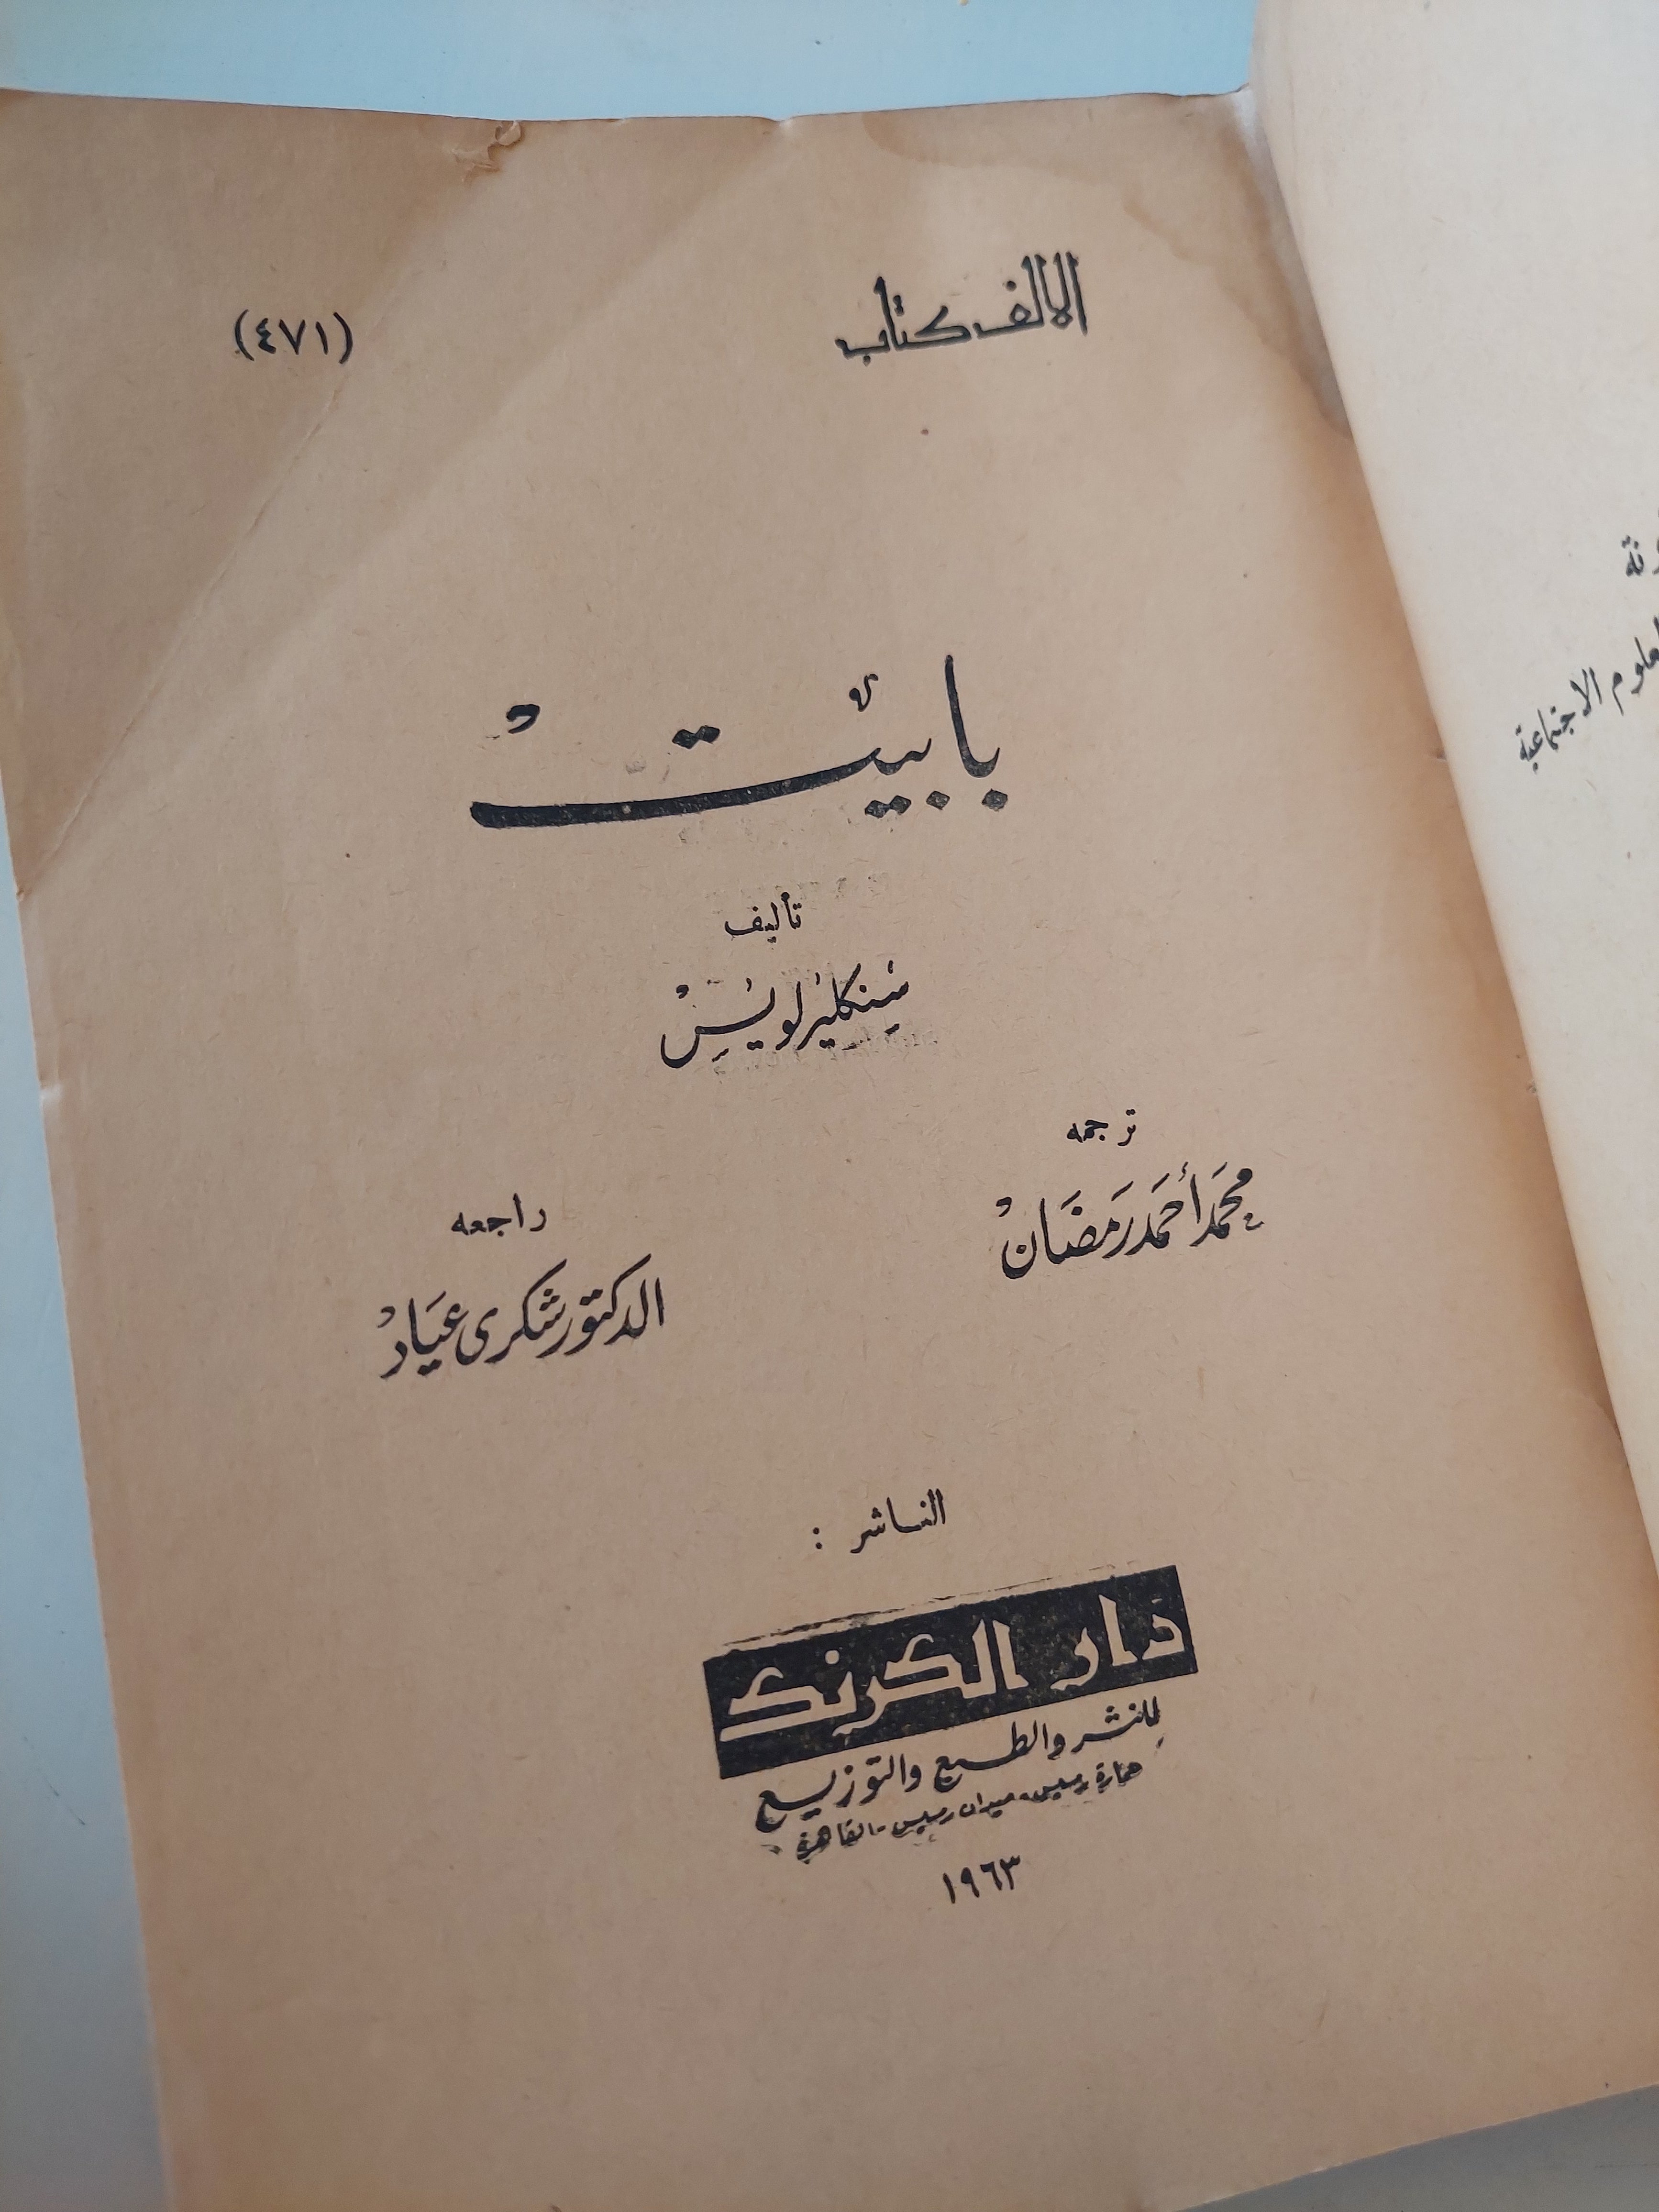 الالف كتاب (٤٧١)
بابيت
تأليف
سنكلير لويس
ترجمه
محمد أحمد رمضان
راجعه
الدكتور شكرى عياد
الناشر :
دار الكرنك
للنشر والطبع والتوزيع
عمارة رمسيس - ميدان رمسيس - القاهرة
١٩٦٣
الاجتماعية